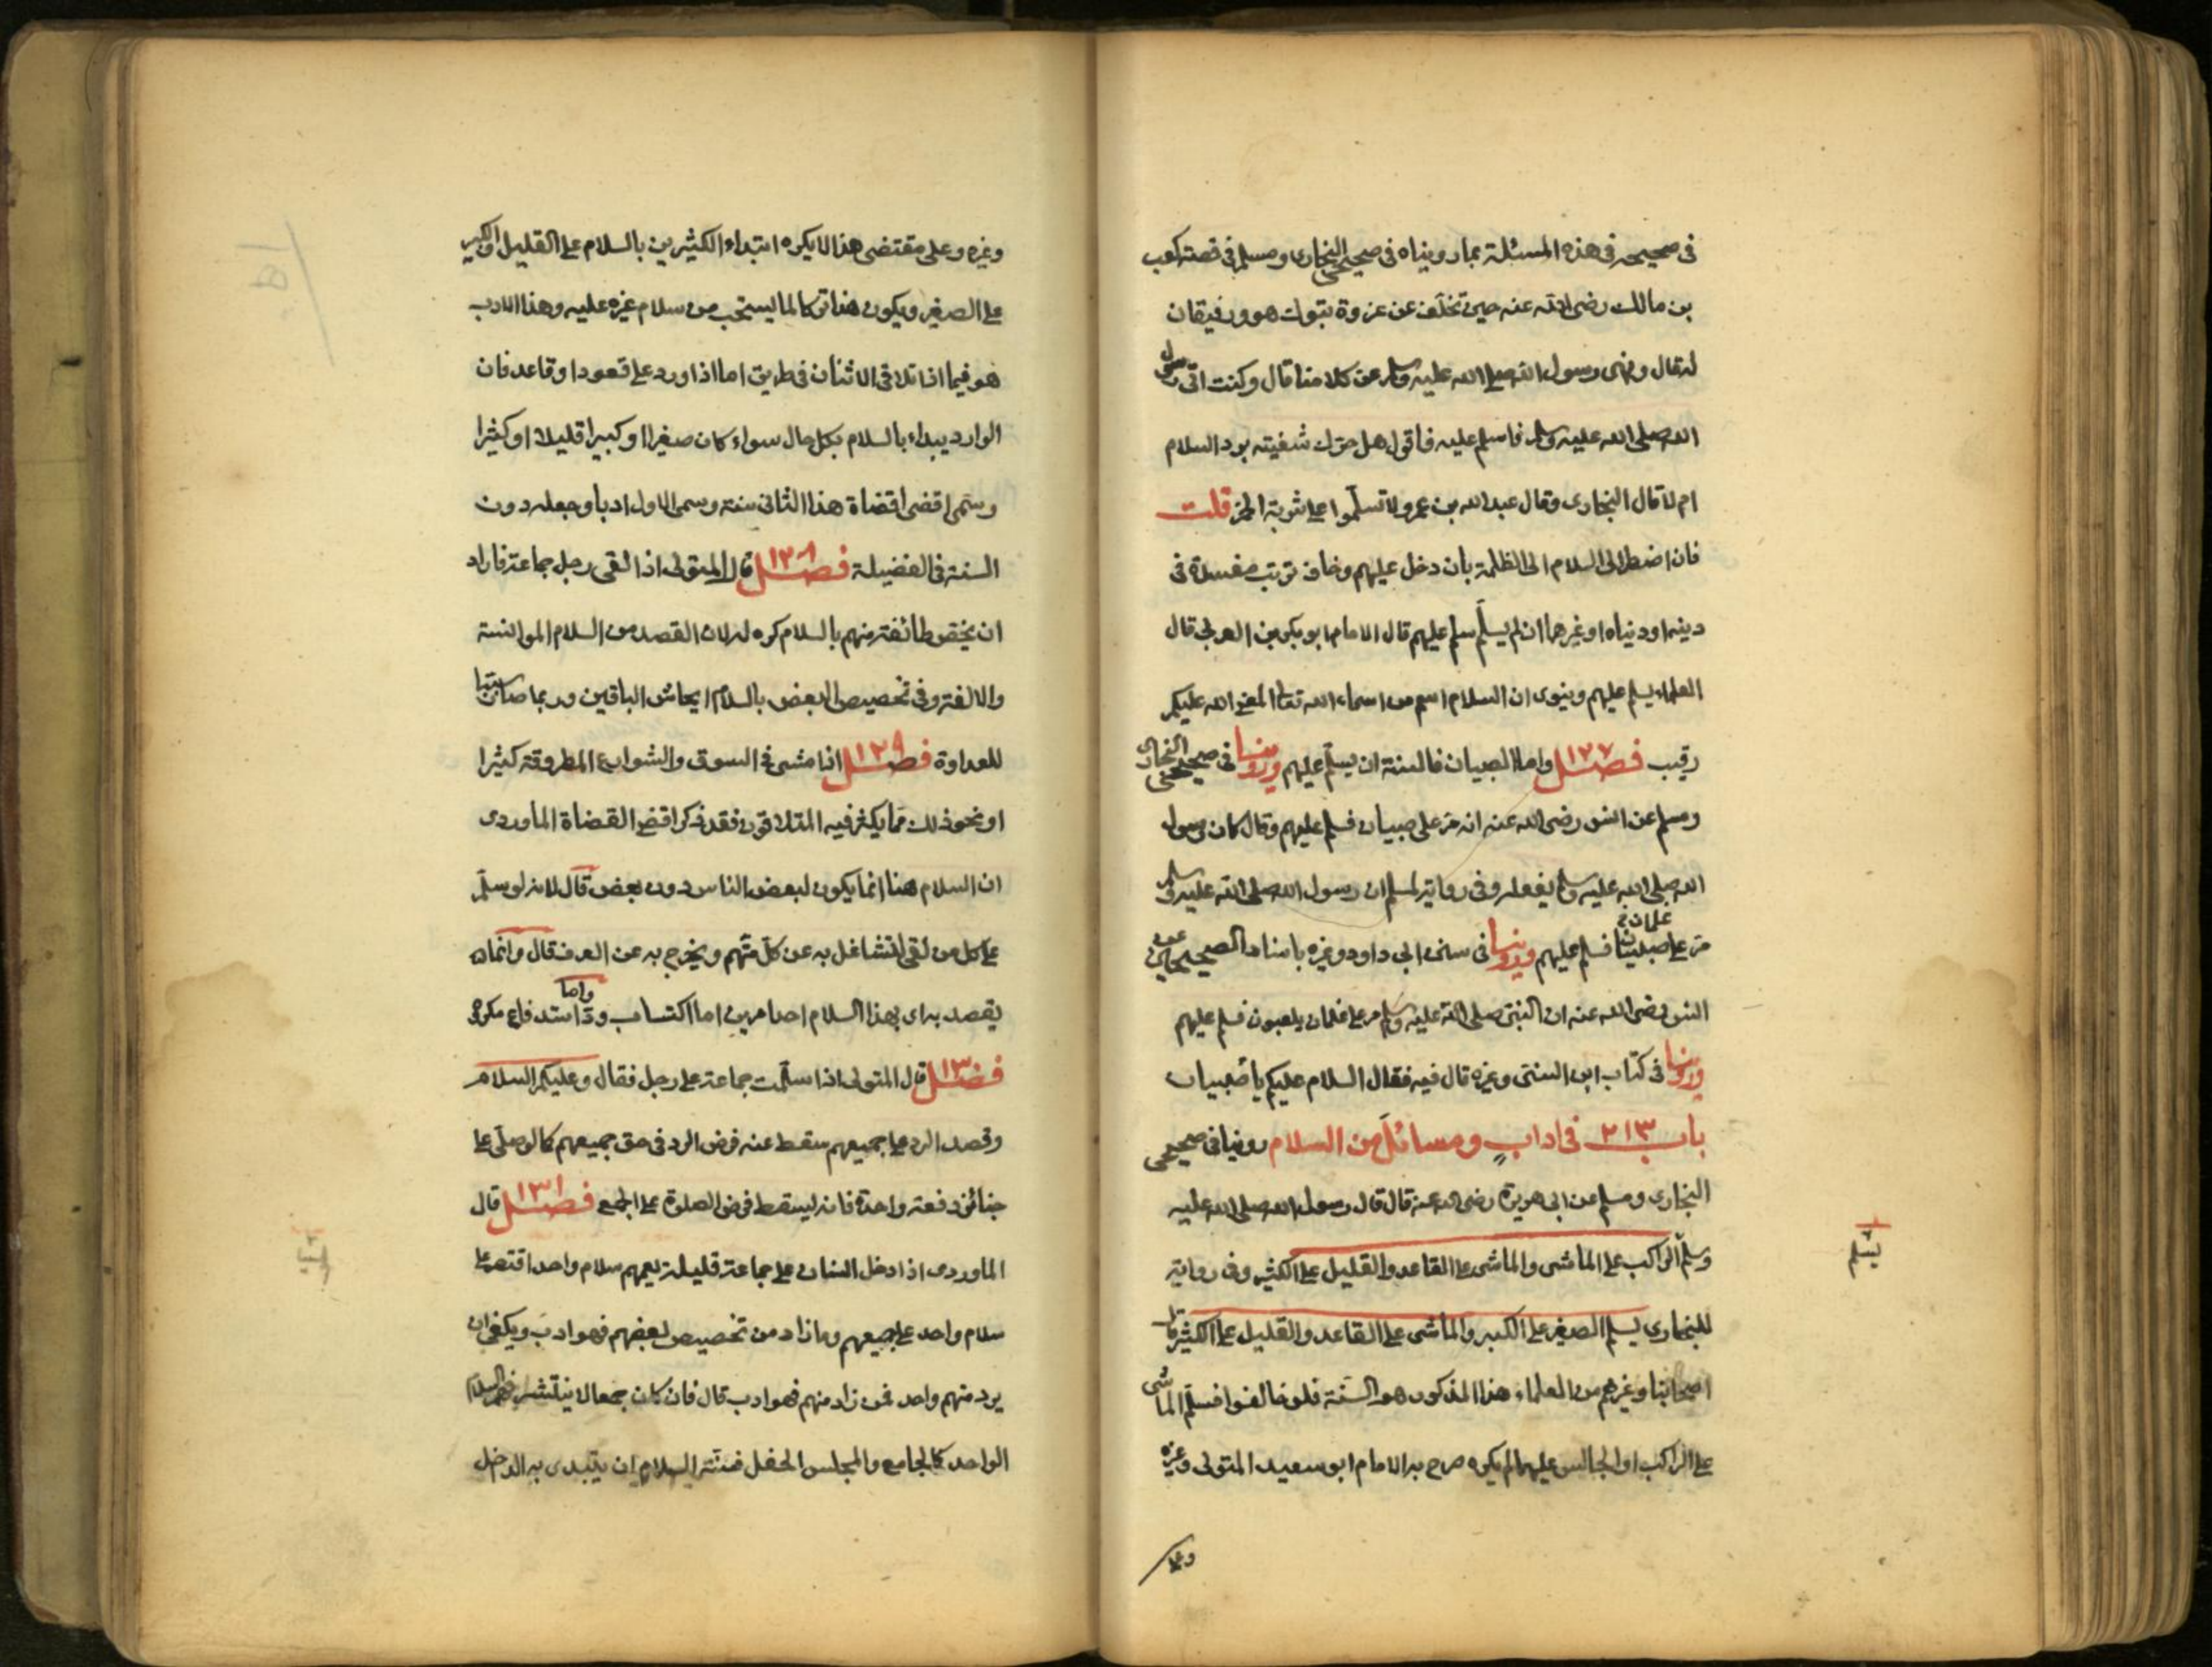 فى صحيحه فى هذه المسئلة بما روينا‍ه فى صحيحى البخارى ومسلم فى قصة كعب
بن مالك رضى الله عنه حين تخلف عن غزوة تبوك هو ورفيقان
له قال ونهى رسول الله صلى الله عليه وسلم عن كلامنا قال وكنت اتى رسول
الله صلى الله عليه وسلم فاسلم عليه فاقول هل حرك شفيته برد السلام
ام لا قال البخارى وقال عبد الله بن عمرو لا تسلّموا على شربة الخمر قلت
فان اضطر الى السلام الى الظلمة بان دخل عليهم وخاف ترتب مفسدة فى
دينه او دنياه او غيرهما ان لم يسلّم سلم عليهم قال الامام ابو بكر بن العربى قال
العلماء يسلم عليهم وينوى ان السلام اسم من اسماء الله تعالى المعنى الله عليكم
رقيب فصل ١٢٧ واما الصبيان فالسنة ان يسلّم عليهم وروينا فى صحيحى البخارى
ومسلم عن انس رضى الله عنه انه مرّ على صبيان فسلم عليهم وقال كان رسول
الله صلى الله عليه وسلم يفعله وفى رواية لمسلم ان رسول الله صلى الله عليه وسلم
غلمان
مرّ على صبيان فسلم عليهم وروينا فى سنن ابى داود وغيره باسناد الصحيحين عن
انس رضى الله عنه ان النبىّ صلى الله عليه وسلم مر على غلمان يلعبون فسلم عليهم
وروينا فى كتاب ابن السنى وغيره قال فيه فقال السلام عليكم يا صبيان
باب ٢١٣ فى اداب ومسائل من السلام روينا فى صحيحى
البخارى ومسلم عن ابى هريرة رضى الله عنه قال قال رسول الله صلى الله عليه
وسلم الراكب على الماشى والماشى على القاعد والقليل على الكثير وفى رواية
يسلم
للبخارى يسلم الصغير على الكبير والماشى على القاعد والقليل على الكثير قال
اصحابنا وغيرهم من العلماء هذا المذكور هو السّنة فلو خالفوا فسلّم الماشى
على الراكب او الجالس عليهما لم يكره صرح به الامام ابو سعيد المتولى وغيره
وعلى
وغيره وعلى مقتضى هذا لا يكره ابتداء الكثيرين بالسلام على القليل والكبير
على الصغير ويكون هذا تركا لما يستحب من سلام غيره عليه وهذا الادب
هو فيما اذا تلاقى الاثنان فى طريق اما اذا ورد على قعود او قاعد فان
الوارد يبداء بالسلام بكل حال سواء كان صغيرا او كبيرا قليلا او كثيرا
وسمّى اقضى اقضاة هذا الثانى سنة وسمى الاول ادبا وجعله دون
السنة فى الفضيلة فصل ١٢٨ قال المتولى اذا لقى رجل جماعة فاراد
ان يختص طائفة منهم بالسلام كره له لان القصد من السلام الموانسة
والالفة وفى تخصيص البعض بالسلام ايحاش الباقين وربما صار سببا
للعداوة فصل ١٢٩ اذا مشى فى السوق والشوارع المطروقة كثيرا
او نحو ذلك مما يكثر فيه المتلاقون فقد ذكر اقضى القضاة الماوردى
ان السلام هنا انما يكون لبعض الناس دون بعض قال لانه لو سلّم
على كل من لقى لتشاغل به عن كلّ مّهم ويخرج به عن العرف قال وانما
واما
يقصد به اى بهذا السلام احد امرين اما اكتساب ودّ استدفاع مكروه
فصل ١٣٠ قال المتولى اذا سلّمت جماعة على رجل فقال وعليكم السلام
وقصد الرد على جميعهم سقط عنه فرض الرد فى حق جميعهم كما لو صلّى على
جنائز دفعة واحدة فانه ليسقط فرض الصلوة على الجميع فصل ١٣١ قال
الماوردى اذا دخل انسان على جماعة قليلة يعمهم سلام واحد اقتصر على
سلام واحد على جميعهم وما زاد من تخصيص بعضهم فهو ادب ويكفى ان
يرد منهم واحد فمن زاد منهم فهو ادب قال فان كان جمعا لا ينتشر فيهم السلام
الواحد كالجامع والمجلس الحفل فسنة السلام ان يبتدى به الداخل